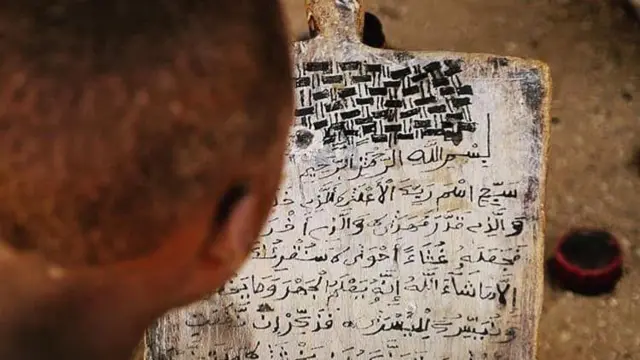 بسم الله الرحمن الرحيم
سبح اسم ربك الأعلى الذي
والذي قدر فهدى والذي أخر
فجعله غثاء أحوى سنقرئك
إلا ما شاء الله إنه يعلم الجهر وما يخ
ونيسرك لليسرى فذكر إن نفعت